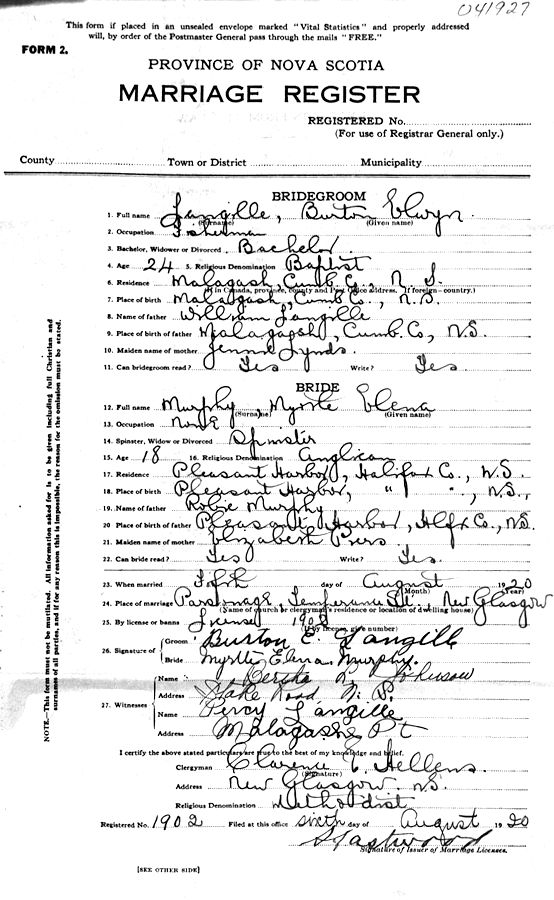 041927
This form if placed in an unsealed envelope marked "Vital Statistics" and properly addressed
will, by order of the Postmaster General pass through the mails "FREE."
FORM 2.
PROVINCE OF NOVA SCOTIA
MARRIAGE REGISTER
REGISTERED No.
(For use of Registrar General only.)
County Town or District Municipality
BRIDEGROOM
1. Full name Langille, Burton Elwyn
(Surname) (Given name)
2. Occupation Fisherman
3. Bachelor, Widower or Divorced Bachelor
4. Age 24 5. Religious Denomination Baptist
6. Residence Malagash, Cumb. Co., N. S.
(If in Canada, province, county and Post Office address. If foreign—country.)
7. Place of birth Malagash, Cumb Co., N.S.
8. Name of father William Langille
9. Place of birth of father Malagash, Cumb. Co, N.S.
10. Maiden name of mother Jennie Lynds.
11. Can bridegroom read? Yes Write? Yes.
BRIDE
12. Full name Murphy, Myrtle Elena
(Surname) (Given name)
13. Occupation None
14. Spinster, Widow or Divorced Spinster
15. Age 18 16. Religious Denomination Anglican
17. Residence Pleasant Harbor, Halifax Co., N.S.
18. Place of birth Pleasant Harbor, " " ., N.S.,
19. Name of father Murphy
20 Place of birth of father Pleasant Harbor, Hlfx Co., N.S.
21. Maiden name of mother Elizabeth
22. Can bride read? Yes Write? Yes.
23. When married day of August 1920
(Month) (Year)
24. Place of marriage Parsonage, Temperance St., New Glasgow
(Name of church or clergyman's residence or location of dwelling house)
25. By license or banns License 1902
(If by license, give number)
26. Signature of Groom Burton E. Langille
Bride Myrtle Elena Murphy.
27. Witnesses Name Bertha L. Johnson
Address Road N. S.
Name Percy Langille
Address Malagash Pt
I certify the above stated particulars are true to the best of my knowledge and belief.
Clergyman Clarence E. Hellens
(Signature)
Address New Glasgow. N.S.
Religious Denomination Methodist
Registered No. 1902 Filed at this office sixth day of August 1920
Eastwood
Signature of Issuer of Marriage Licenses.
[SEE OTHER SIDE]
NOTE.—This form must not be mutilated. All information asked for is to be given including full Christian and
surnames of all parties, and if for any reason this is impossible, the reason for the omission must be stated.